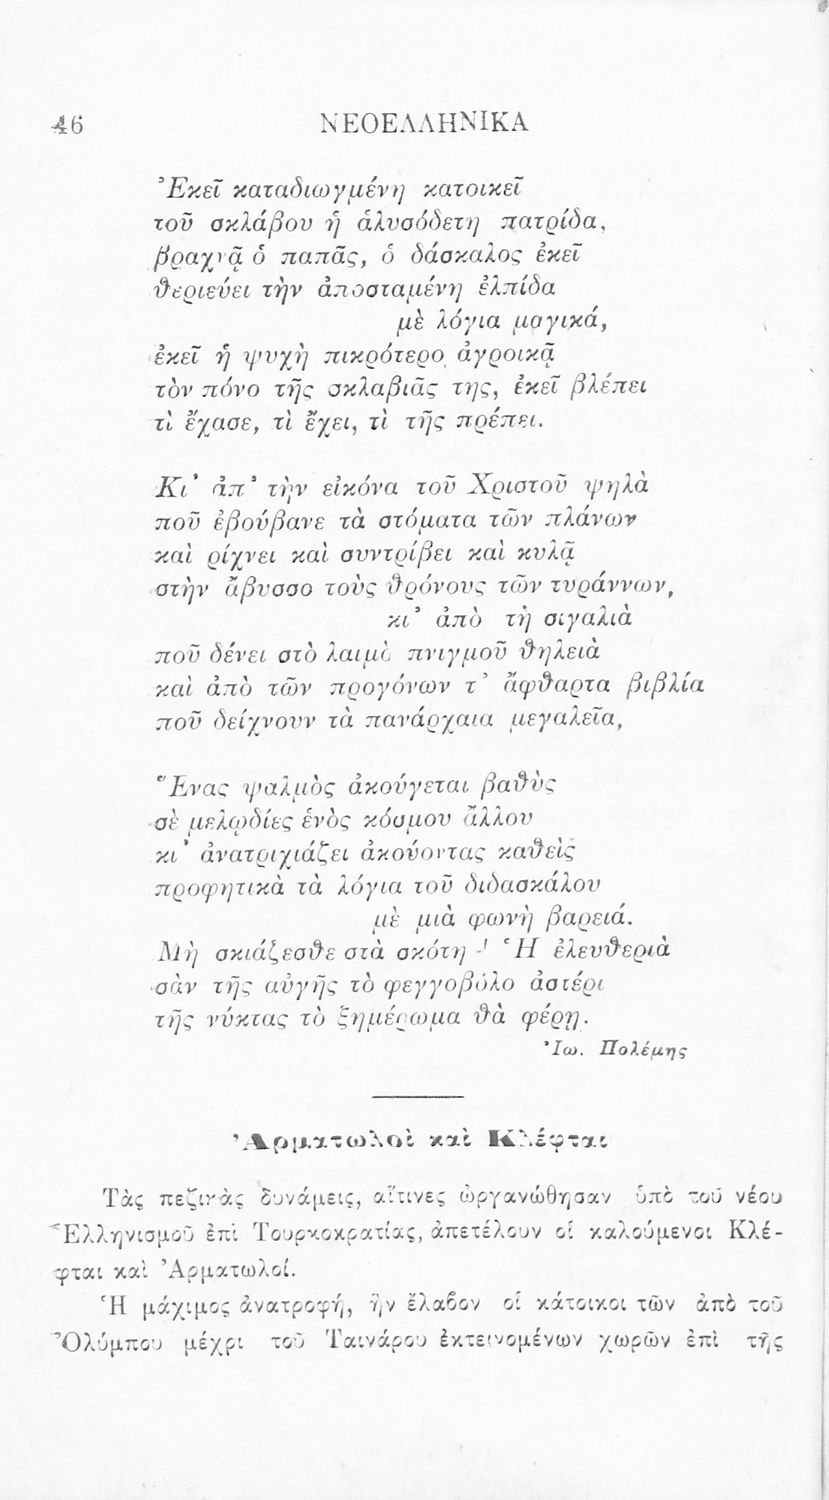 46 ΝΕΟΕΛΛΗΝΙΚΑ
Ἐκεῖ καταδιωγμένη κατοικεῖ
τοῦ σκλάβου ἡ ἁλυσόδετη πατρίδα,
βραχνᾷ ὁ παπᾶς, ὁ δάσκαλος ἐκεῖ
θεριεύει τὴν ἀποσταμένη ἐλπίδα
μὲ λόγια μαγικά,
ἐκεῖ ἡ ψυχὴ πικρότερο ἀγροικᾷ
τὸν πόνο τῆς σκλαβιᾶς της, ἐκεῖ βλέπει
τὶ ἔχασε, τὶ ἔχει, τὶ τῆς πρέπει.
Κι' ἀπ' τὴν εἰκόνα τοῦ Χριστοῦ ψηλὰ
ποῦ ἐβούβανε τὰ στόματα τῶν πλάνων
καὶ ρίχνει καὶ συντρίβει καὶ κυλᾷ
στὴν ἄβυσσο τοὺς θρόνους τῶν τυράννων,
κι' ἀπὸ τὴ σιγαλιὰ
ποῦ δένει στὸ λαιμὸ πνιγμοῦ θηλειὰ
καὶ ἀπὸ τῶν προγόνων τ' ἄφθαρτα βιβλία
ποῦ δείχνουν τὰ πανάρχαια μεγαλεῖα,
Ἕνας ψαλμὸς ἀκούγεται βαθὺς
σὲ μελῳδίες ἑνὸς κόσμου ἄλλου
κι' ἀνατριχιάζει ἀκούοντας καθεὶς
προφητικὰ τὰ λόγια τοῦ διδασκάλου
μὲ μιὰ φωνὴ βαρειά.
Μὴ σκιάζεσθε στὰ σκότη -! Ἡ ἐλευθεριὰ
σὰν τῆς αὐγῆς τὸ φεγγοβόλο ἀστέρι
τῆς νύκτας τὸ ξημέρωμα θὰ φέρῃ.
Ἰω. Πολέμης
Ἀρματωλοὶ καὶ Κλέφται
Τὰς πεζικὰς δυνάμεις, αἵτινες ὠργανώθησαν ὑπὸ τοῦ νέου
Ἑλληνισμοῦ ἐπὶ Τουρκοκρατίας, ἀπετέλουν οἱ καλούμενοι Κλέ-
φται καὶ Ἀρματωλοί.
Ἡ μάχιμος ἀνατροφή, ἣν ἔλαβον οἱ κάτοικοι τῶν ἀπὸ τοῦ
Ὀλύμπου μέχρι τοῦ Ταινάρου ἐκτεινομένων χωρῶν ἐπὶ τῆς